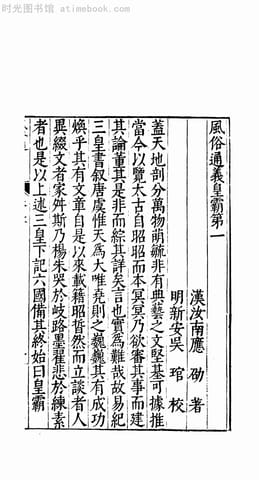 时光图书馆 www.atimebook.com
風俗通義皇霸第一
漢汝南應劭著
明新安吳琯校
蓋天地剖分萬物萌毓非有典藝之文堅基可據推
當今以覽太古自昭昭而本冥冥乃欲審其事而建
其論董其是非而綜其詳矣言也實為難哉故易紀
三皇書叙唐虞惟天為大唯堯則之巍巍其有成功
煥乎其有文章自是以來載籍昭晢然而立談者人
異綴文者家舛斯乃楊朱哭於岐路墨翟悲於練素
者也是以上述三皇下記六國備其終始曰皇霸